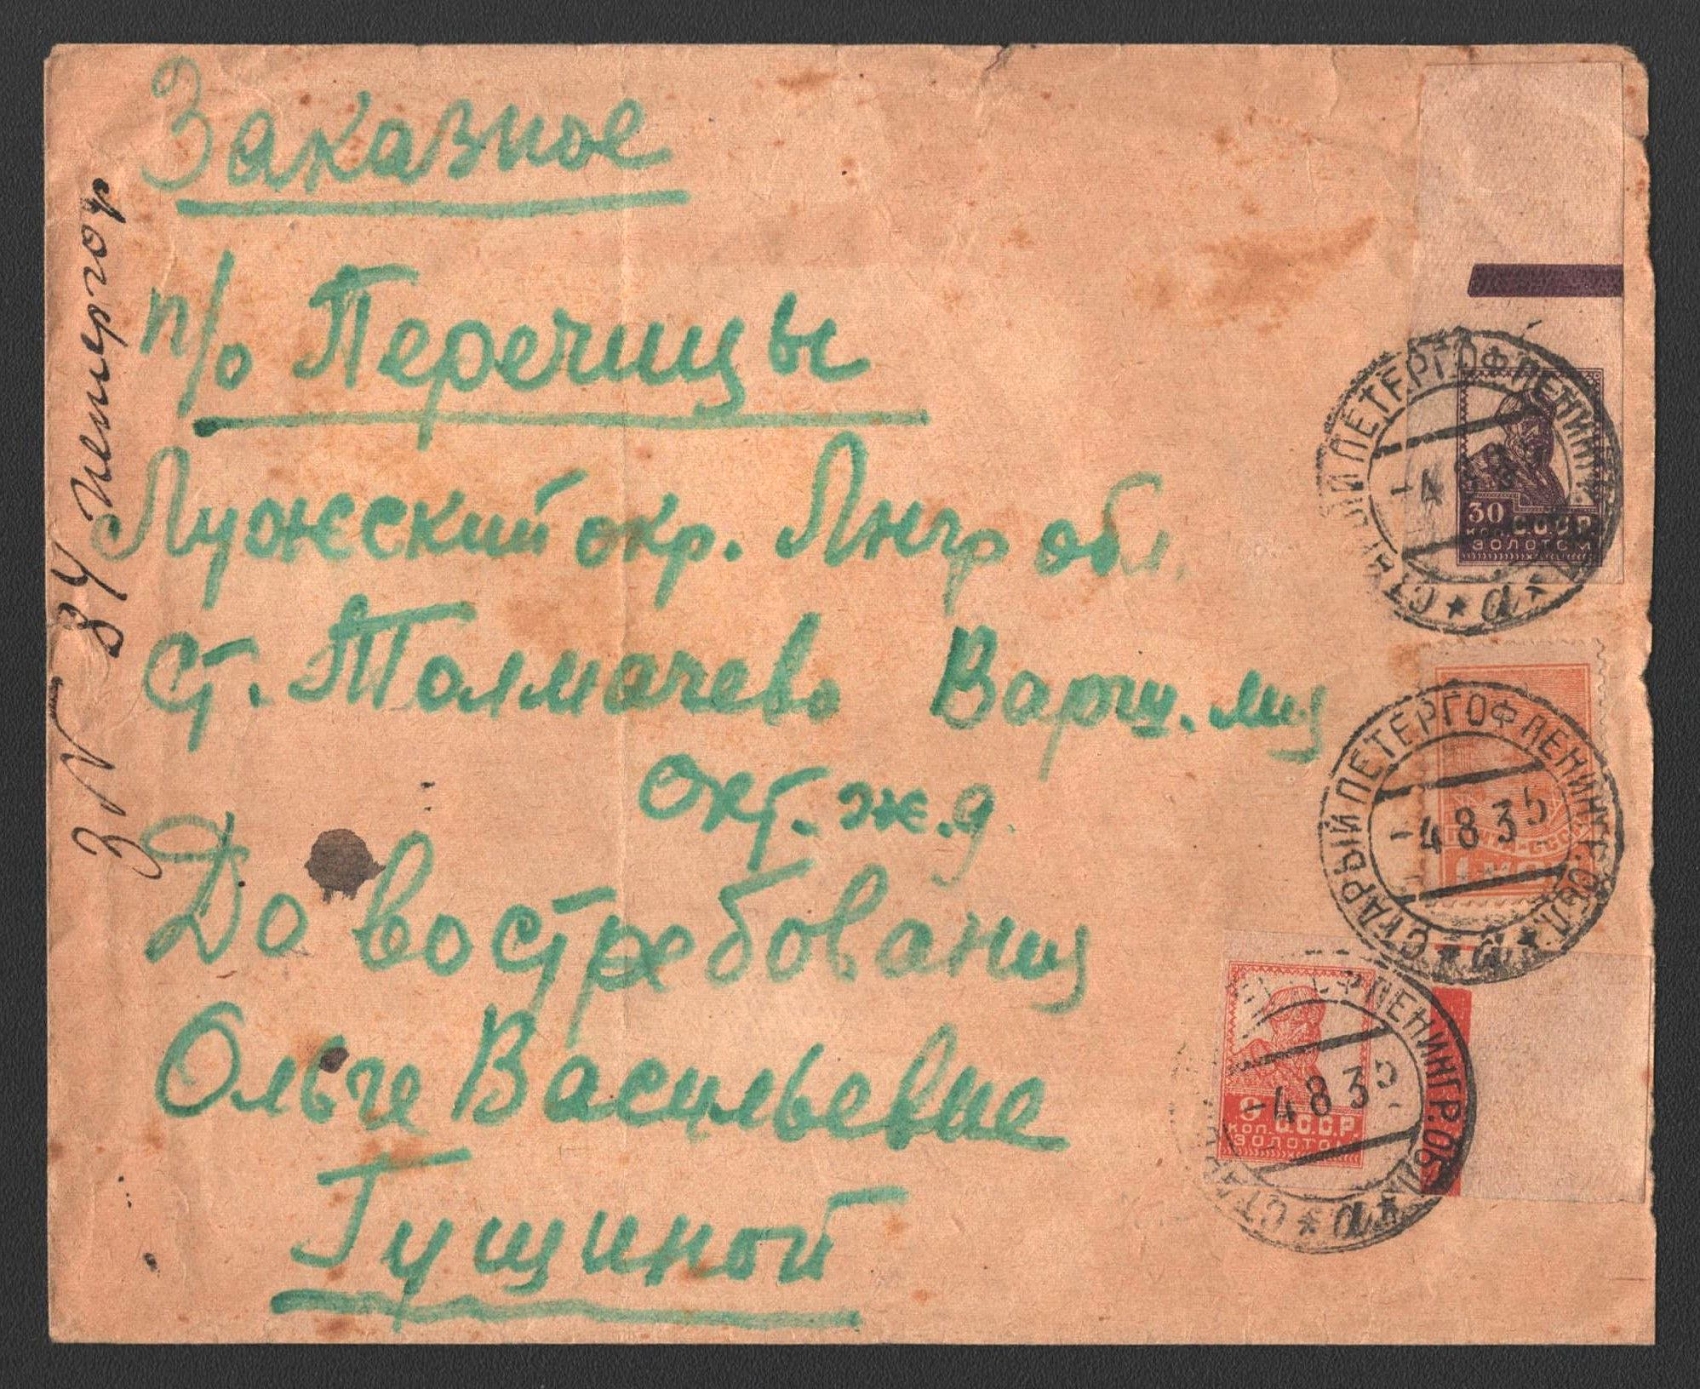 Заказное
п/о Перечицы
Лужский окр. Лнгр обл.
ст. Толмачево Варш. лия
окт. ж.д.
До востребования
Ольге Васильевне
Гущиной
з N 84 Петергоф
30
КОП. СССР
ЗОЛОТОМ
СТАРЫЙ ПЕТЕРГОФ ЛЕНИНГР. ОБЛ.
-4 8 35
СТАРЫЙ ПЕТЕРГОФ ЛЕНИНГР. ОБЛ.
-4 8 35
КОП. СССР
ЗОЛОТОМ
ЛЕНИНГР. ОБЛ.
-4 8 35